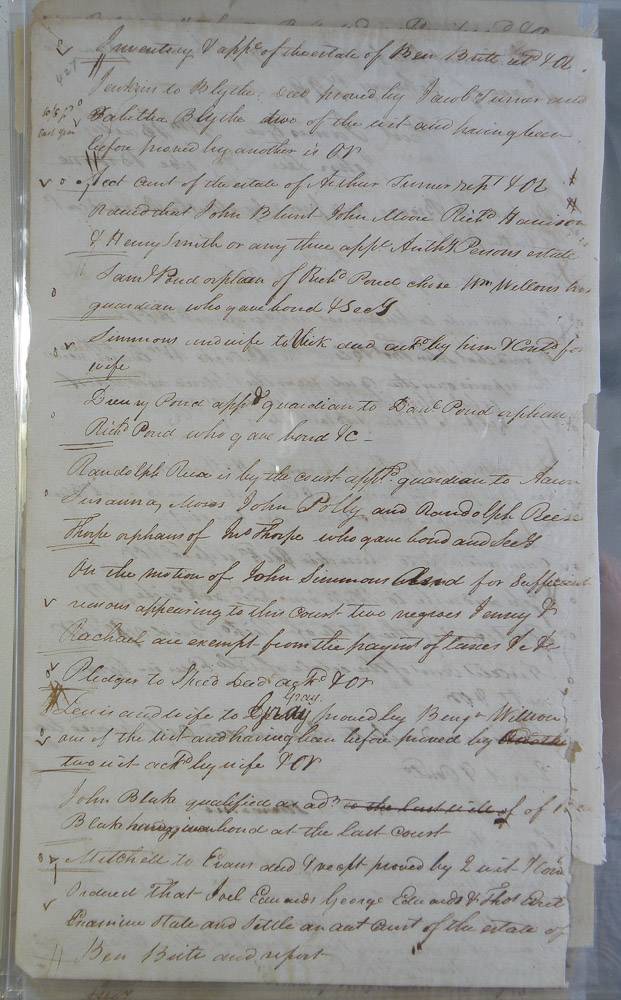 Inventory & appt of the estate of Ben Britt retd & OR
427
Jenkins to Blythe. Deed proved by Jacob Turner and
Tabitha Blythe two of the wit and having been
before proved by another is OR
Acct Curt of the estate of Arthur Turner rett & OR
Ordered that John Blunt John Moore Richd Harrison
& Henry Smith or any three appe Anthy Persons estate
Saml Pond orphan of Richd Pond chose Wm Wellons his
guardian who gave bond & Secy
Simmons and wife to Vick and ackd by him & Contd for
wife
Drewry Pond appd guardian to Danl Pond orphan
Richd Pond who gave bond &C -
Randolph Reese is by the court apptd guardian to Aaron
Susanna, Moses John Polly and Randolph Reese
Thorpe orphans of Jno Thorpe who gave bond and Secy
On the motion of John Simmons and for Sufficient
reasons appearing to this Court two negroes Jenny &
Rachael are exempt from the paymt of taxes &c &c
Pledger to Speed Deed ackd & OR
Gray
Lewis and wife to Gray proved by Benja Willson
one of the wit and having been before proved by Another
two wit ackd by wife & OR
John Blake qualified as adr to the last will of of
Blake having given bond at the last Court
Mitchell to Evans and rect proved by 2 wit & Contd
Ordered that Joel Edwards George Edwards & Thos Britt
Examine State and Settle an act Curt of the estate of
Ben Britt and report